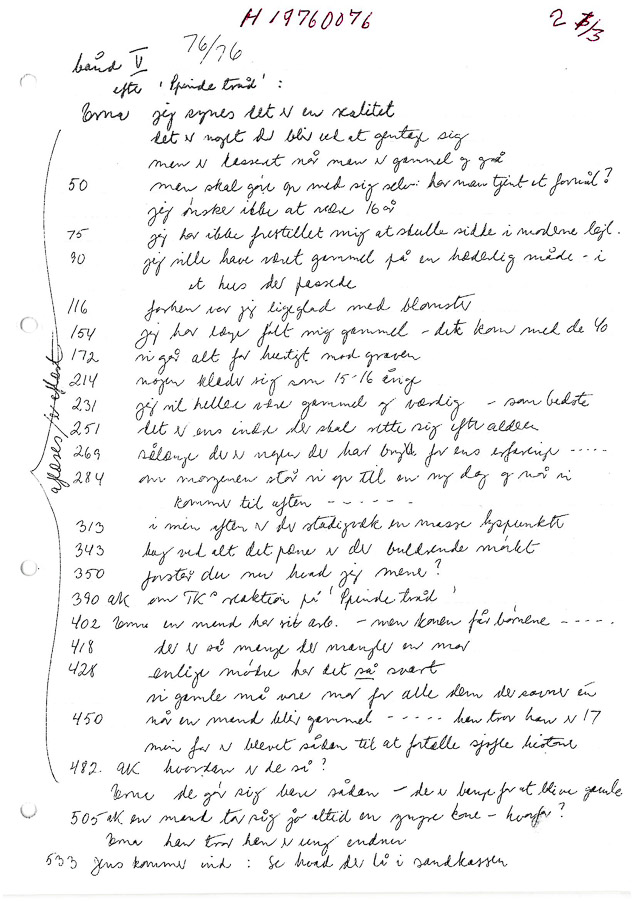 H 19760076
2 /3
76/76
bånd V
efter 'Spinde tråd' :
Erna jeg synes det er en realitet
det er noget der bliver ved at gentage sig
men er kasseret når man er gammel og grå
50 men skal gøre op med sig selv: har man tjent et formål?
jeg ønsker ikke at være 16 år
75 jeg har ikke forestillet mig at skulle sidde i moderne lejl.
90 jeg ville have været gammel på en hæderlig måde - i
et hus der passede
116 førhen var jeg ligeglad med blomster
154 jeg har længe følt mig gammel - det kom med de 40
172 vi går alt for hurtigt mod graven
214 nogen klæder sig som 15-16 årige
231 jeg vil hellere være gammel og værdig - som bedste
251 det er ens indre der skal rette sig efter alderen
269 sålænge der er nogen der har brug for ens erfaringe - - - - -
284 om morgenen står vi op til en ny dag og når vi
kommer til aften - - - - - -
313 i min aften er der stadigvæk en masse lyspunkter
343 bag ved alt det pæne er der buldrende mørkt
350 forstår du nu hvad jeg mener?
390 AK om TK's reaktion på 'Spinde tråd'
402 Erna en mand har sit arb. - men konen får børnene - - - - -
418 der er så mange der mangler en mor
428 enlige mødre har det så svært
vi gamle må være mor for alle dem der savner én
450 når en mand blir gammel - - - - - han tror han er 17
min far er blevet sådan til at fortælle sjofle historier
482. AK hvordan er de så?
Erna de gør sig bare sådan - de er bange for at blive gamle
505 AK en mand tar sig jo altid en yngre kone - hvorfor?
Erna han tror han er ung endnu
533 Jens kommer ind : Se hvad der lå i sandkassen